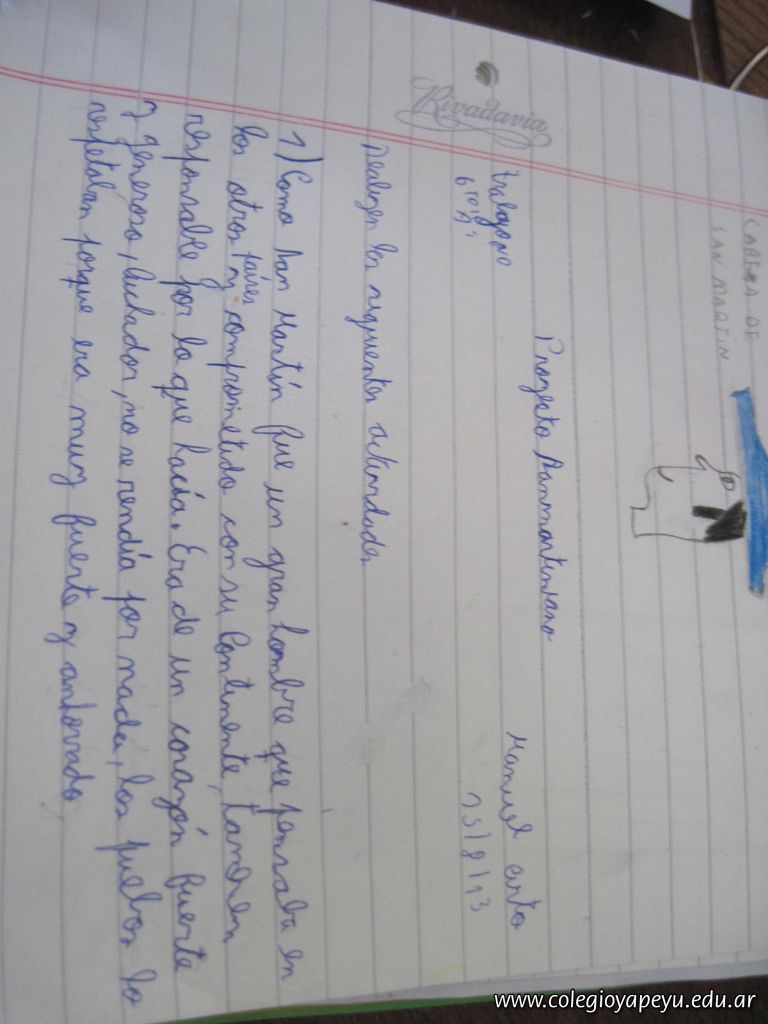 CABEZA DE
SAN MARTIN
Rivadavia
Proyecto Sanmartiniano
trabajo
6to A
Manuel
15/8/13
Realizen las siguientes actividades
1) Como San Martín fue un gran hombre que pensaba en
los otros países y comprometido con su Continente, tambien
responsable por lo que hacía. Era de un corazón fuerte
y generoso, luchador, no se rendía por nada, los pueblos lo
respetaban porque era muy fuerte y
www.colegioyapeyu.edu.ar